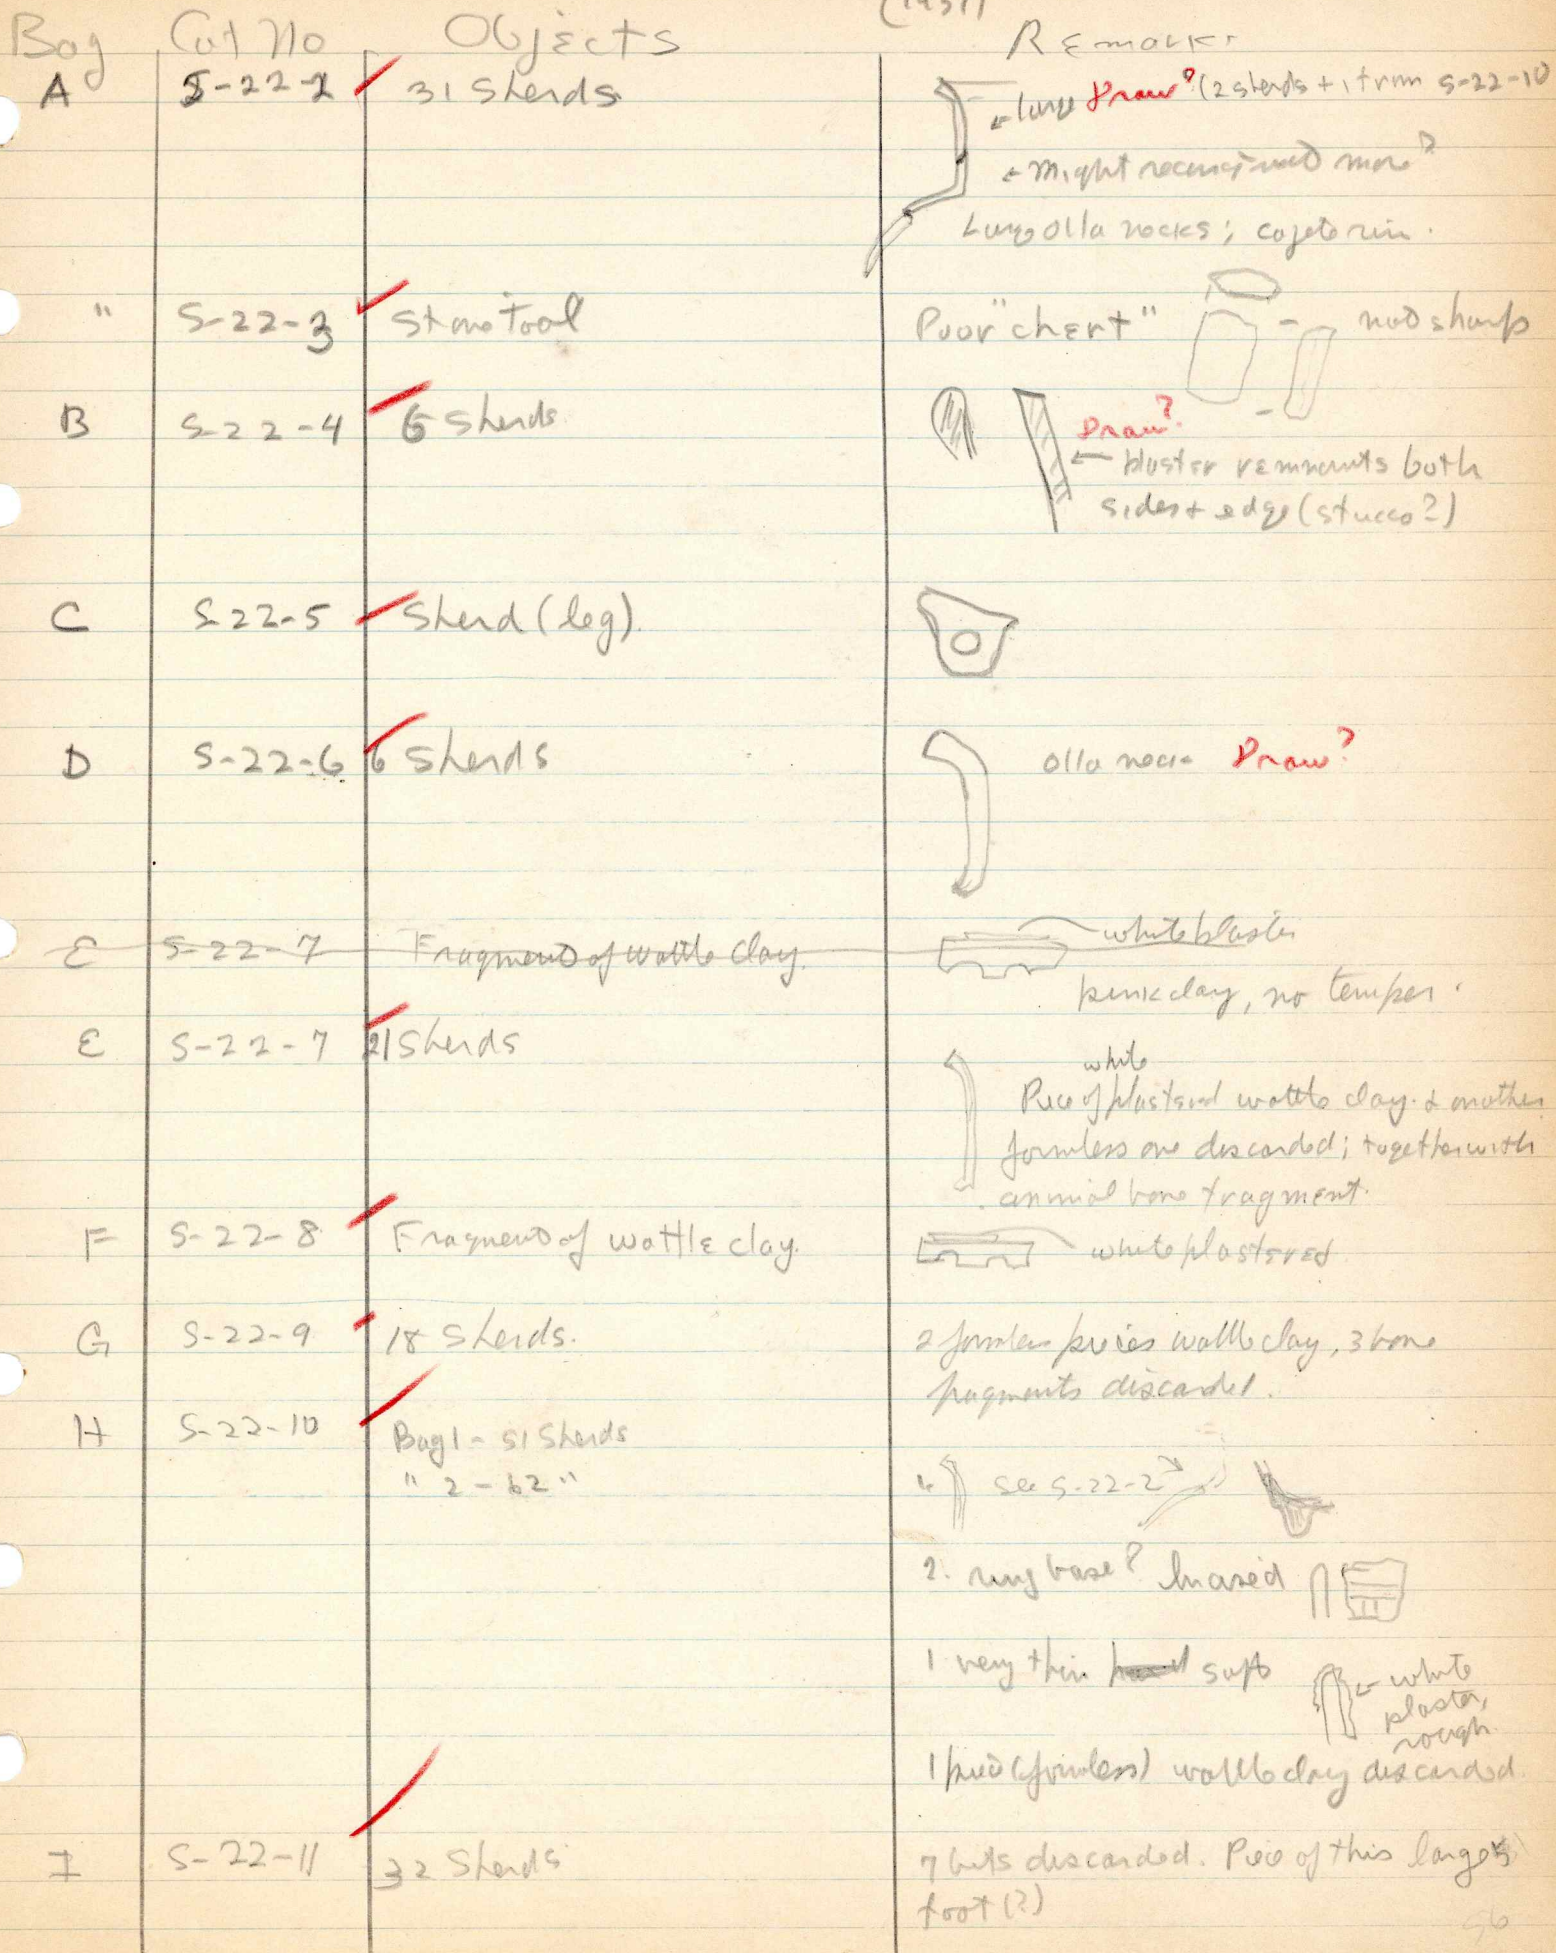 (1951)
Bag Cat No Objects Remarks
A S-22-2 31 Sherds Large Draw? (2 sherds + 1 from S-22-10
Might reconstruct more?
Large olla necks; cajete rim.
" S-22-3 Stone Tool Poor "chert" not sharp
B S-22-4 6 Sherds Draw?
plaster remnants both
sides + edge (stucco?)
C S-22-5 Sherd (leg).
D S-22-6 6 Sherds olla neck Draw?
E S-22-7 Fragment of wattle clay. white plaster
pink clay, no temper.
E S-22-7 21 Sherds
white
Piece of plastered wattle clay & another
formless one discarded; together with
animal bone fragment.
F S-22-8 Fragment of wattle clay. white plastered
G S-22-9 18 Sherds. 2 formless pieces wattle clay, 3 bone
fragments discarded.
H S-22-10 Bag 1 - 51 Sherds
" 2 - 62 " see S-22-2
2. ring base? Incised
1 very thin soft white
plaster,
rough
1 piece (formless) wattle clay discarded.
I S-22-11 32 Sherds 7 bits discarded. Piece of this large
foot (?)